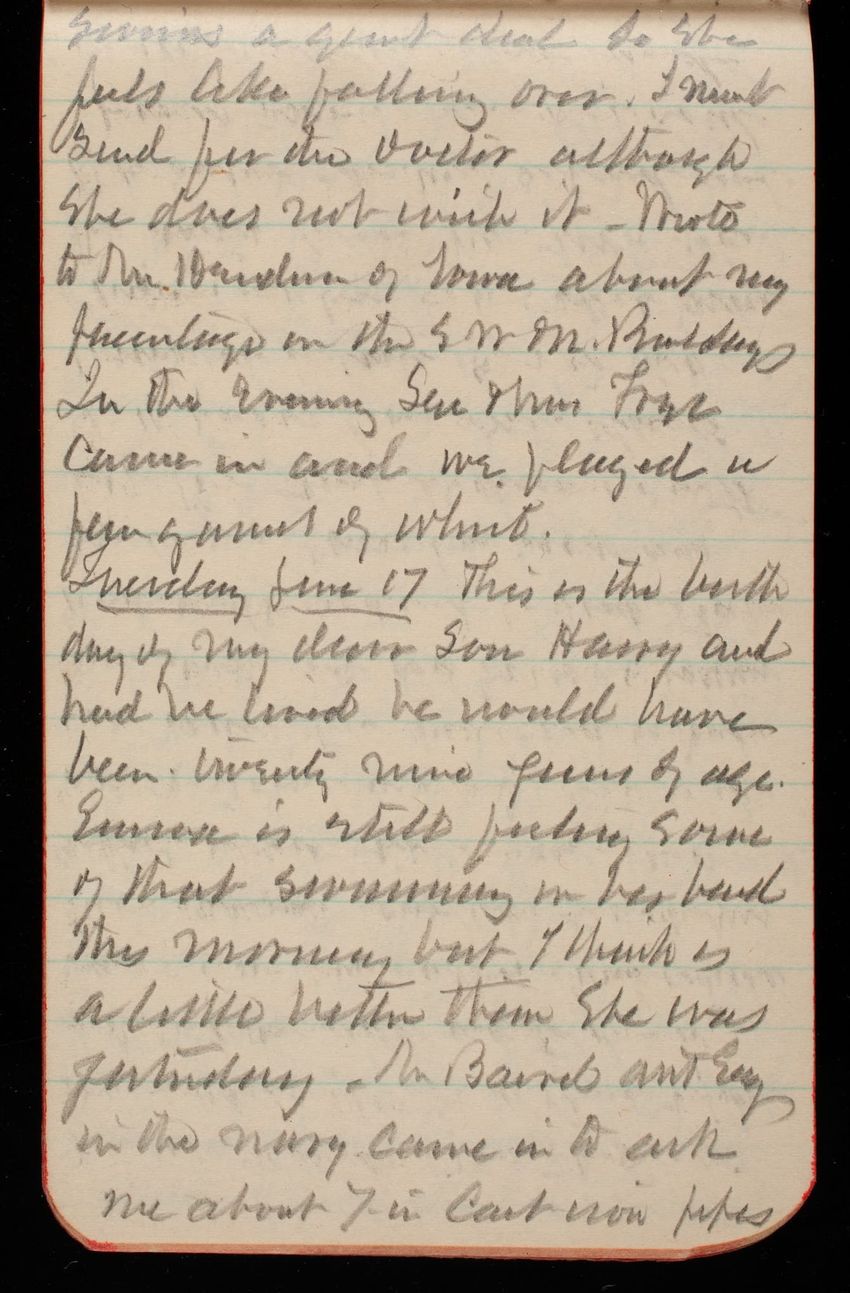 swims a great deal so she
feels like falling over. I must
send for the doctor although
she does not wish it - Wrote
to Mr. Henderson of Iowa about my
percentage on the S W & N. Buildings
In the evening Sen & Mrs Frye
came in and we played a
few games of whist.
Tuesday June 17 This is the birth
day of my dear son Harry and
had he lived he would have
been twenty nine years of age.
Emma is still feeling some
of that swimming in her head
this morning but I think is
a little better than she was
yesterday - Mr Baird ant Eng
in the navy came in to ask
me about 7 in Cast iron pipes